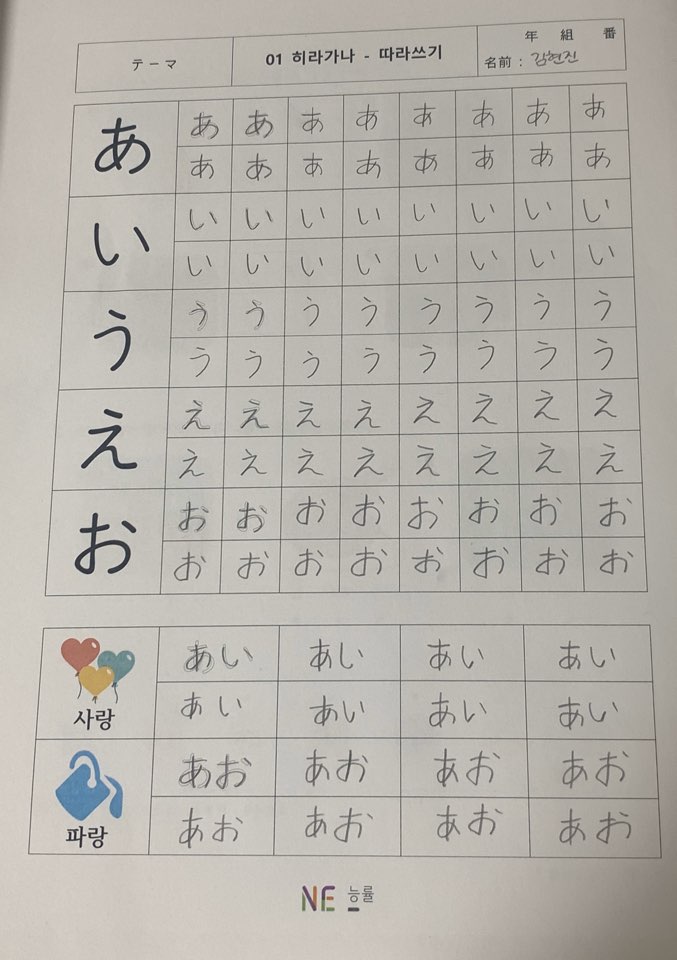 テーマ 01 히라가나 - 따라쓰기 年 組 番
名前 : 김현진
あ あ あ あ あ あ あ あ あ
あ あ あ あ あ あ あ あ
い い い い い い い い い
い い い い い い い い
う う う う う う う う う
う う う う う う う う
え え え え え え え え え
え え え え え え え え
お お お お お お お お お
お お お お お お お お
あい あい あい あい
사랑 あい あい あい あい
あお あお あお あお
파랑 あお あお あお あお
NE 능률